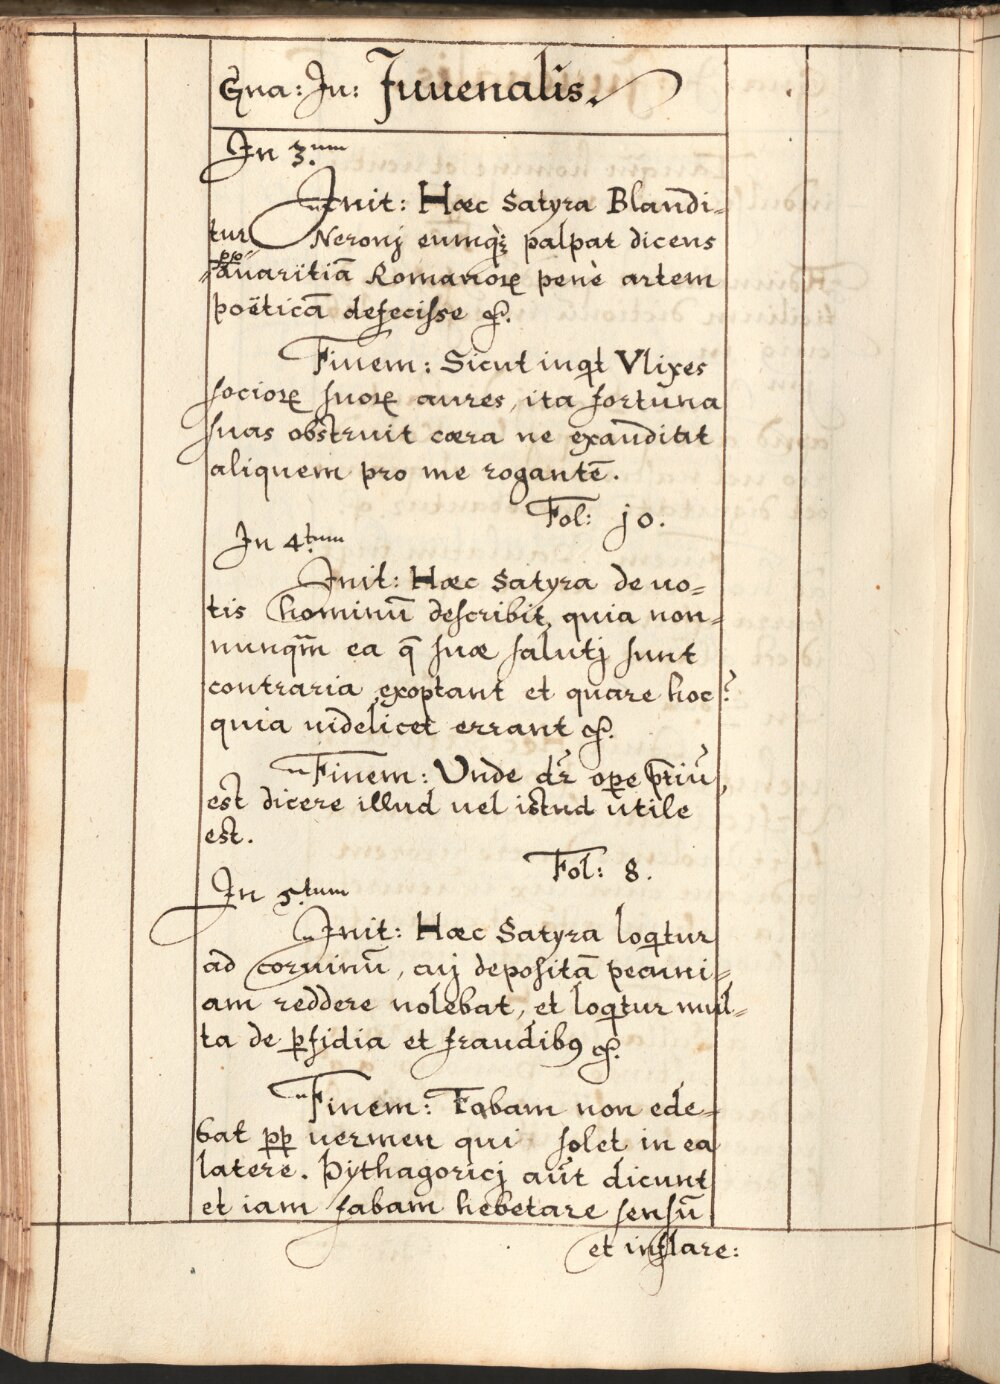 Gna: In: Juuenalis.
In 3.um
Init: Hæc Satyra Blandi=
tur Neronj eumq; palpat dicens
ꝓp̲ auaritiā Romanoꝝ penè artem
poëticā defecisse &.
Finem: Sicut inqt Vlixes
socioꝝ suoꝝ aures, ita fortuna
suas obstruit cæra ne exauditat
aliquem pro me rogantē.
Fol: jo.
In 4.tum
Init: Hæc Satyra de uo=
tis hominū describit, quia non=
nunqm̄ ea q̄ suæ salutj sunt
contraria exoptant et quare hoc?
quia uidelicet errant &.
Finem: Unde dr̄ ope p̄tiū
est dicere illud uel istud utile
est.
Fol: 8.
In 5.tum
Init: Hæc Satyra loqtur
ad Coruinū, cuj depositā pecuni=
am reddere nolebat, et loqtur mul=
ta de ꝑfidia et fraudibꝰ &.
Finem: Fabam non ede=
bat pp̄ uermen qui solet in ea
latere. Pythagoricj aut̄ dicunt
et iam fabam hebetare sensū
et inflare: